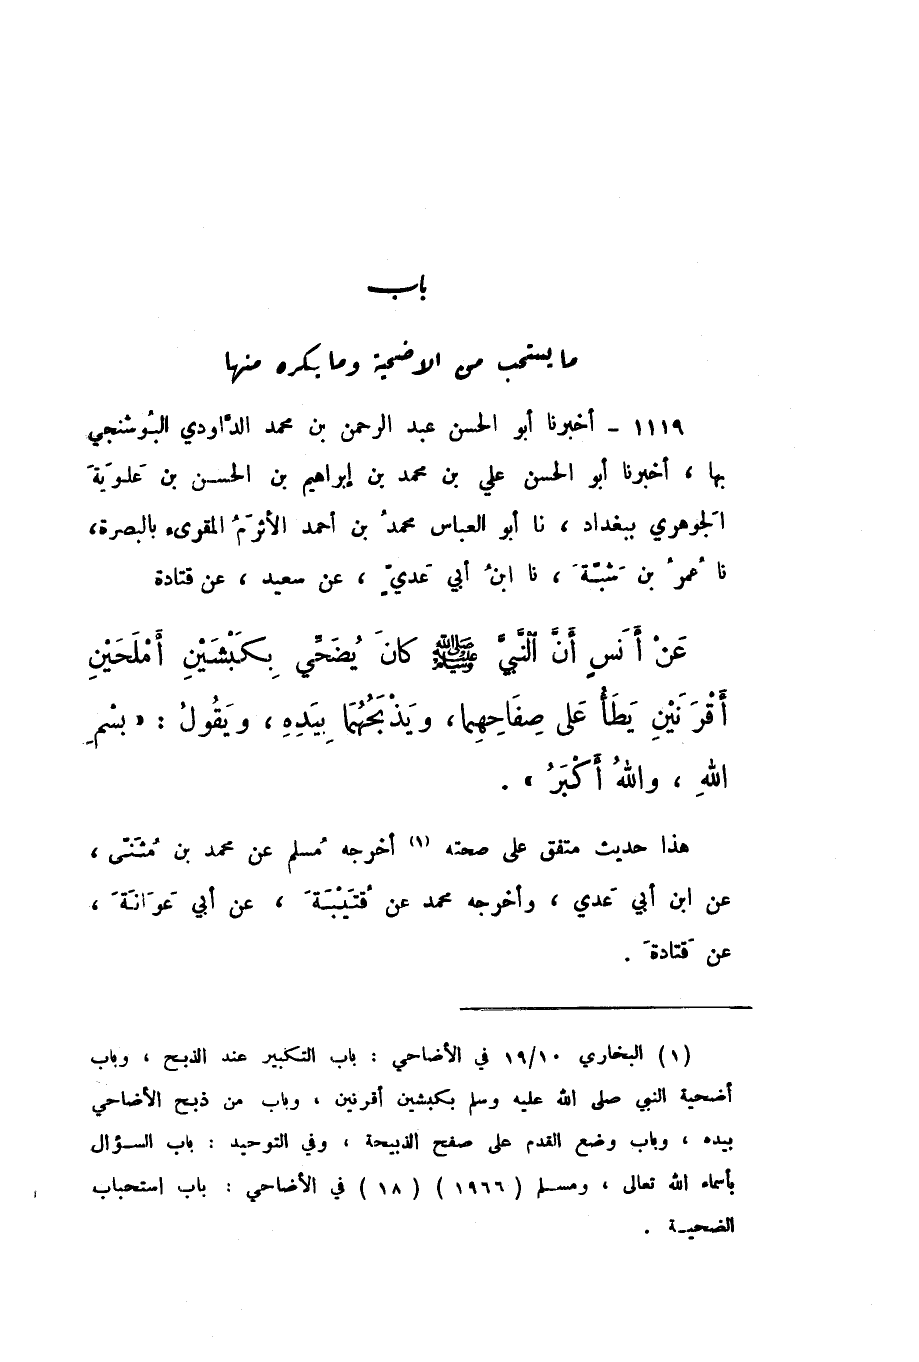 باب
ما يستحب من الاضحية وما يكره منها
١١١٩ – أخبرنا أبو الحسن عبد الرحمن بن محمد الدَّاودي البُوشنجي
بها ، أخبرنا أبو الحسن علي بن محمد بن إبراهيم بن الحسن بن عَلويَّةَ
الجَوهري ببغداد ، نا أبو العباس محمدُ بن أحمد الأثرَمُ المقرىء بالبصرة،
نا عُمرُ بن شَبَّةَ ، نا ابنُ أبي عَديٍّ ، عن سعيد ، عن قتادة
عَنْ أَنَسٍ أَنَّ ٱلنَّبِيَّ ﷺ كانَ يُضَحِّي بِكَبْشَيْنِ أَمْلَحَيْنِ
أَقْرَنَيْنِ يَطَأُ عَلى صِفَاحِهِما، ويَذْبَحُهُمَا بِيَدِهِ ، ويَقُولُ : « بِسْمِ
اللهِ ، واللهُ أَكْبَرُ » .
هذا حديث متفق على صحته (١) أخرجه مُسلم عن محمد بن مُثَنّى ،
عن ابن أبي عَدي ، وأخرجه محمد عن قُتَيْبَةَ ، عن أبي عَوَانَةَ ،
عن قَتادةَ .
(١) البخاري ١٩/١٠ في الأضاحي : باب التكبير عند الذبح ، وباب
أضحية النبي صلى الله عليه وسلم بكبشين أقرنين ، وباب من ذبح الأضاحي
بيده ، وباب وضع القدم على صفح الذبيحة ، وفي التوحيد : باب السؤال
بأسماء الله تعالى ، ومسلم ( ١٩٦٦ ) ( ١٨ ) في الأضاحي : باب استحباب
الضحية .